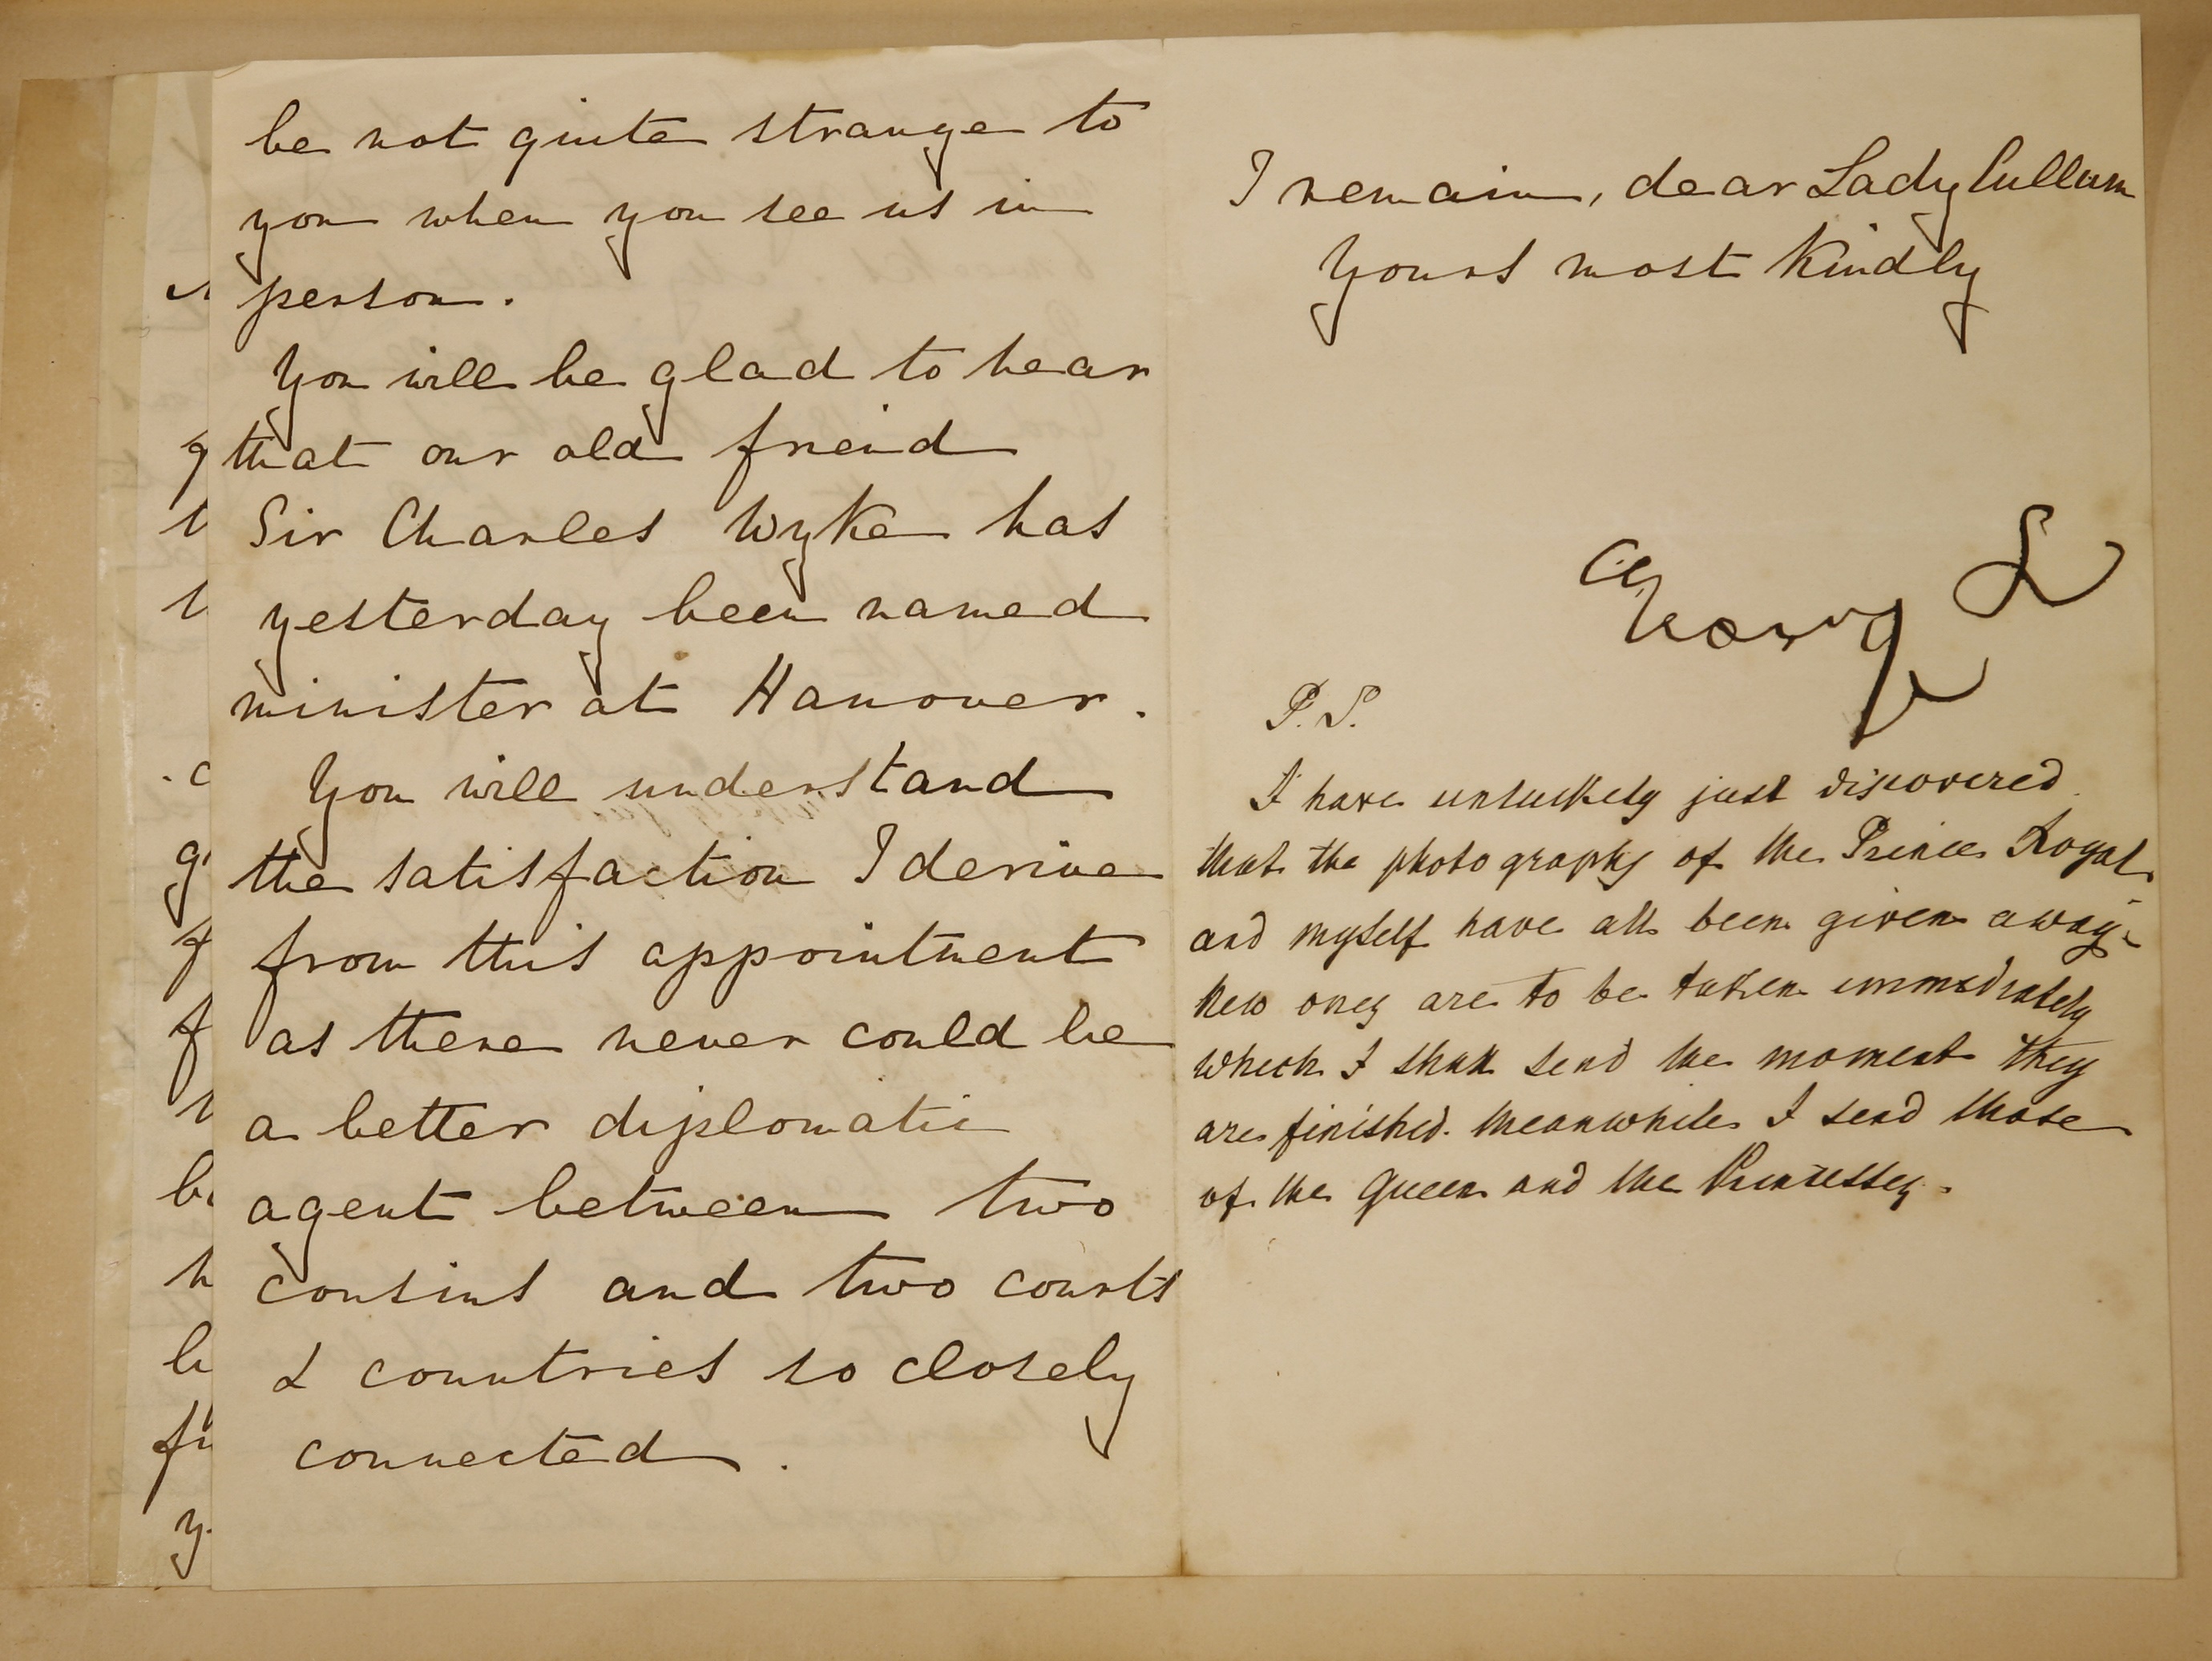 be not quite strange to
you when you see us in
person.
You will be glad to hear
that our old freind
Sir Charles Wyke has
yesterday been named
minister at Hanover.
You will understand
the satisfaction I derive
from this appointment
as there never could be
a better diplomatic
agent between two
cousins and two courts
& countries so closely
connected.
I remain, dear Lady Cullum
Yours most Kindly
George
P.S.
I have unluckely just discovered
that the photographs of the Prince Royal
and myself have all been given away.
New ones are to be taken immediately
which I shall send the moment they
are finished. Meanwhile I send those
of the Queen and the Princesses.